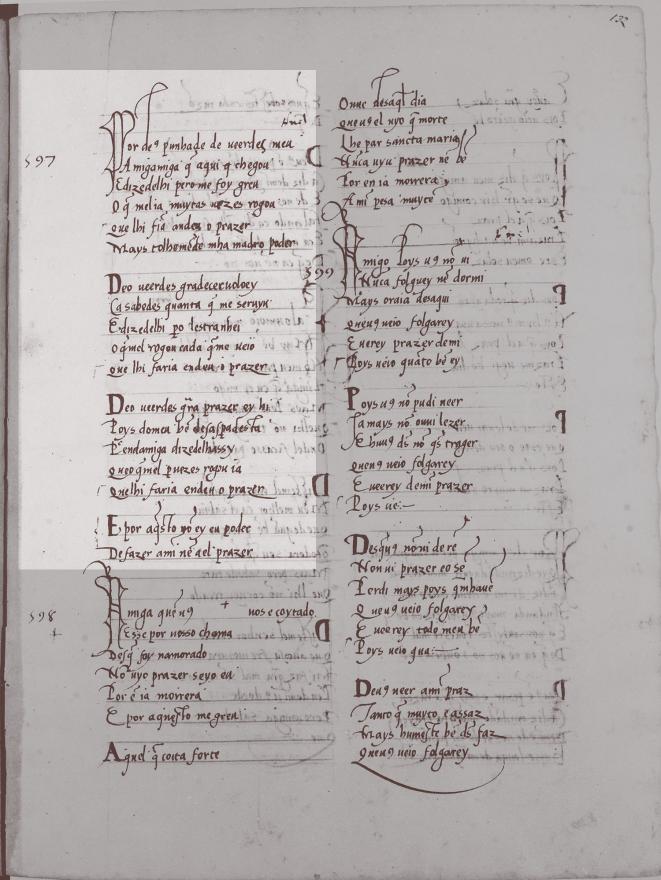 132
597
Por de9 punhade de ueerdes meu
Amigamiga q̄ aqui q̄ chegou
E dizedelhi pero me foy greu
O q̄ melia muytas uezes rogou
que lhi fia andeu o prazer
Mays tolhemede mha madro poder
Deo ueerdes gradecer
Ca sabedes quanta q̄ me seruyu
E dizedelhi po
o q̄mel rogou cada q̄me ueio
que lhi faria endeu o prazer
Deo ueerdes gr̄a prazer ey hi
Poys domeu bē
E endamiga dizedelhassy
que o q̄mel
quelhi faria endeu o prazer
E por aq̄sto nō ey eu poder
De fazer amī nē ael prazer
598
Amiga quē u9 nos e coytado
E sse por uosso chama
Desq̄ foy namorado
Nō uyo prazer seyo eu
Por ē ia moirera
E por aquesto me greu
Aquel q̄ coita forte
Ouue desaq̄l dia
que u9 el uyo q̄ morte
Lhe par sancta maria
Nūca uyu prazer nē bē
Por en ia morrera
A mī pesa muyto
599
Amigo Poys u9 nō ui
Nūca folguey nē dormi
Mays ora ia desaqui
que u9 ueio folgarey
E uerey prazer de mi
Poys ueio quāto bē ey
Poys u9 nō pudi ueer
Jamays nō ouui lezer
E hu u9 d̄s nō q̄s trager
que u9 ueio folgarey
E ueerey de mī prazer
Poys ue
Desqu9 nō ui de re
Non ui prazer eo se
Perdi mays poys q̄mhaue
Que u9 ueio folgarey
E ueerey todo meu bē
Poys ueio qua
Deu9 ueer amī praz
Tanto q̄ muyto e assaz
Mays hu meste bē d̄s faz
que u9 ueio folgarey